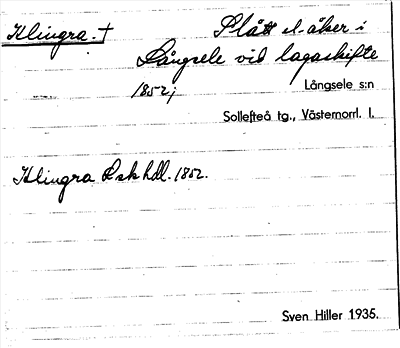 Klingra. †
Slått el. åker i
Långsele vid lagaskifte
1852;
Långsele s:n
Sollefteå tg., Västernorrl. l.
Klingra Lsk hdl. 1852.
Sven Hiller 1935.